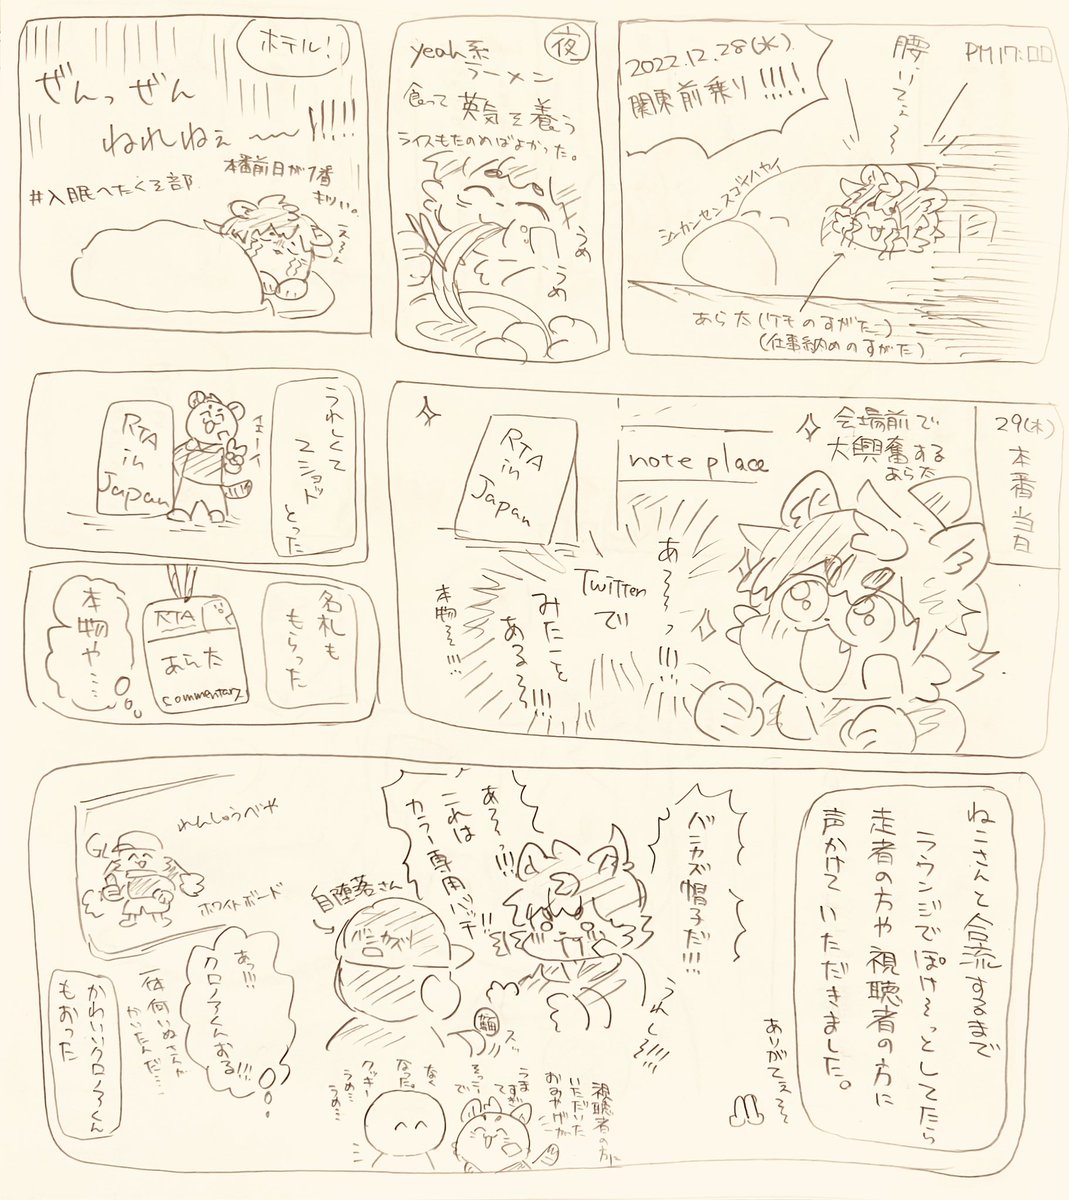 PM17:00
腰いてぇ〜
2022.12.28(水)
関東前乗り!!!!!
シンカンセンスゴイハヤイ
あら太(ケモのすがた)
(仕事納めのすがた)
夜
yeah系
ラーメン
食って英気を養う
ライスもたのめばよかった。
うめ
うめ
ホテル!
ぜんっぜん
ねれねぇ〜〜!!!!!
本番前日が1番
キツい。
#入眠へたくそ部
え〜ん
29(木)
本番当日
会場前で
大興奮する
あら太
note place
RTA
in
Japan
あ〜〜っ!!!
Twitterで
みたこと
ある〜〜!!!
本物っ!!!
うれしくて
2ショット
とった
RTA
in
Japan
名札も
もらった
RTA
あらた
commentary
本物や…
ねこさんと合流するまで
ラウンジでぽけ〜っとしてたら
走者の方や視聴者の方に
声かけていただきました。
ありがてぇ〜〜
バニカズ帽子だ!!!
うれし〜!!!
あ〜〜っ!!!
これは
カラー専用ハッチ!!
自堕落さん
バニカズ
スッ
視聴者の方に
いただいた
おみやげが
うますぎて
そっこうで
なくなった。
クッキー
うめ…
うめ…
れんしゅうべや
ホワイトボード
あっ!!!
クロノアくんおる!!!
一体何いぬさんが
かいたんだ…
かわいいクロノアくん
もおった